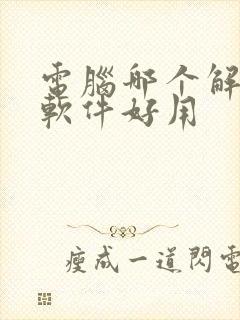 電腦哪个解
軟件好用
瘦成一道閃電